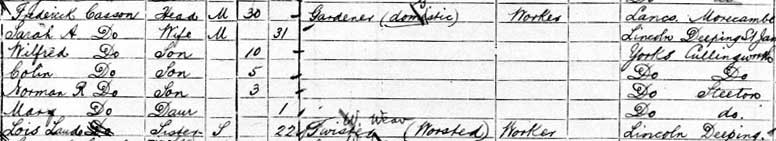 Frederick Casson Head M 30 Gardener (domestic) Worker Lancs. Morecambe
Sarah A. Do Wife M 31 Lincoln Deeping St Jam
Wilfred Do Son 10 Yorks Cullingworth
Colin Do Son 5 Do Do
Norman R Do Son 3 Do Steeton
Mary Do Daur 1 Do do.
W. Weav
Lois Do Sister S 22 Twister (Worsted) Worker Lincoln Deeping